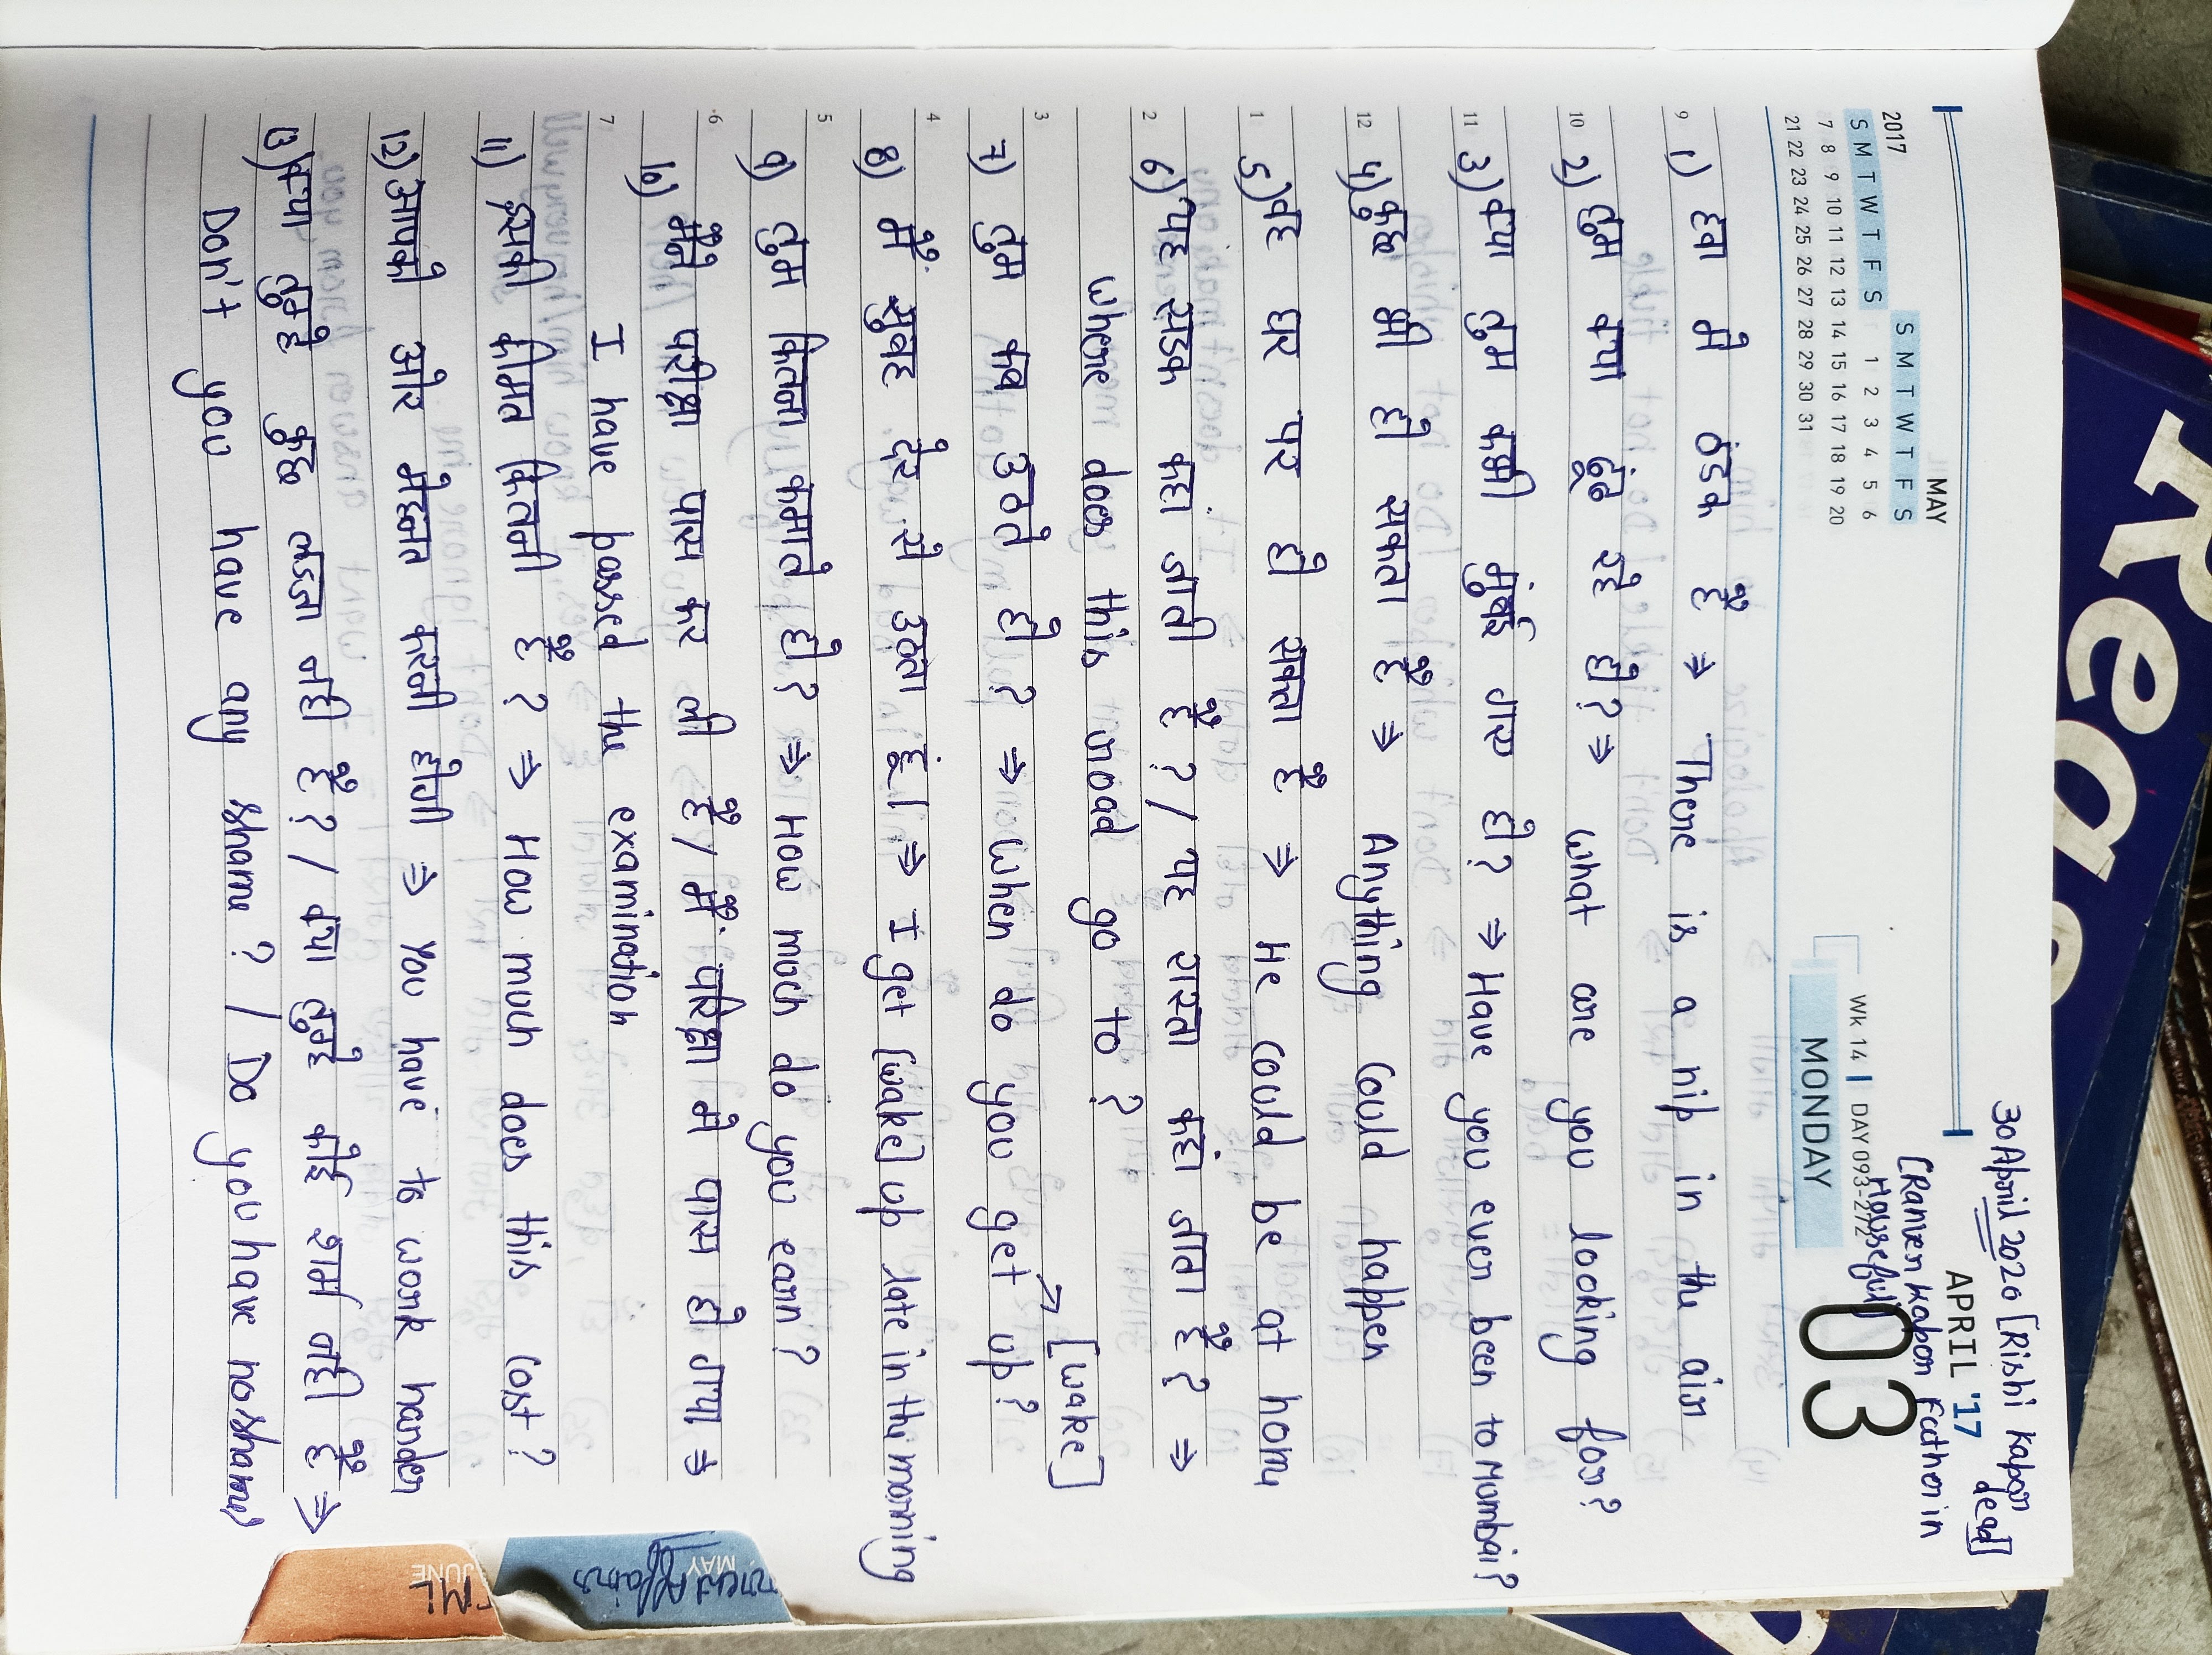 30 April 2020 [Rishi Kapoor dead]
[Ranveer Kapoor Father in Housefull]
APRIL '17
03
MONDAY
Wk 14 | DAY 093-272
MAY
2017
S M T W T F S S M T W T F S
1 2 3 4 5 6
7 8 9 10 11 12 13 14 15 16 17 18 19 20
21 22 23 24 25 26 27 28 29 30 31
9 1) हवा मे ठंडक है ⇒ There is a nip in the air
10 2) तुम क्या ढूंढ रहे हो? ⇒ What are you looking for?
11 3) क्या तुम कभी मुंबई गए हो? ⇒ Have you ever been to Mumbai?
12 4) कुछ भी हो सकता है ⇒ Anything could happen
1 5) वह घर पर हो सकता है ⇒ He could be at home
2 6) यह सडक कहा जाती है? / यह रास्ता कहा जाता है? ⇒
Where does this road go to?
3 7) तुम कब उठते हो? ⇒ When do you get up? ↗ [wake]
4 8) मैं सुबह देर से उठता हूं। ⇒ I get [wake] up late in the morning
5 9) तुम कितना कमाते हो? ⇒ How much do you earn?
6 10) मैंने परीक्षा पास कर ली है / मैं परिक्षा मे पास हो गया ⇒
7 I have passed the examination
11) इसकी कीमत कितनी है? ⇒ How much does this cost?
12) आपको और मेहनत करनी होगी ⇒ You have to work harder
13) क्या तुम्हे कुछ लज्जा नही है? / क्या तुम्हे कोई शर्म नही है ⇒
Don't you have any shame? / Do you have no shame
MAY
JUNE
ML
Red